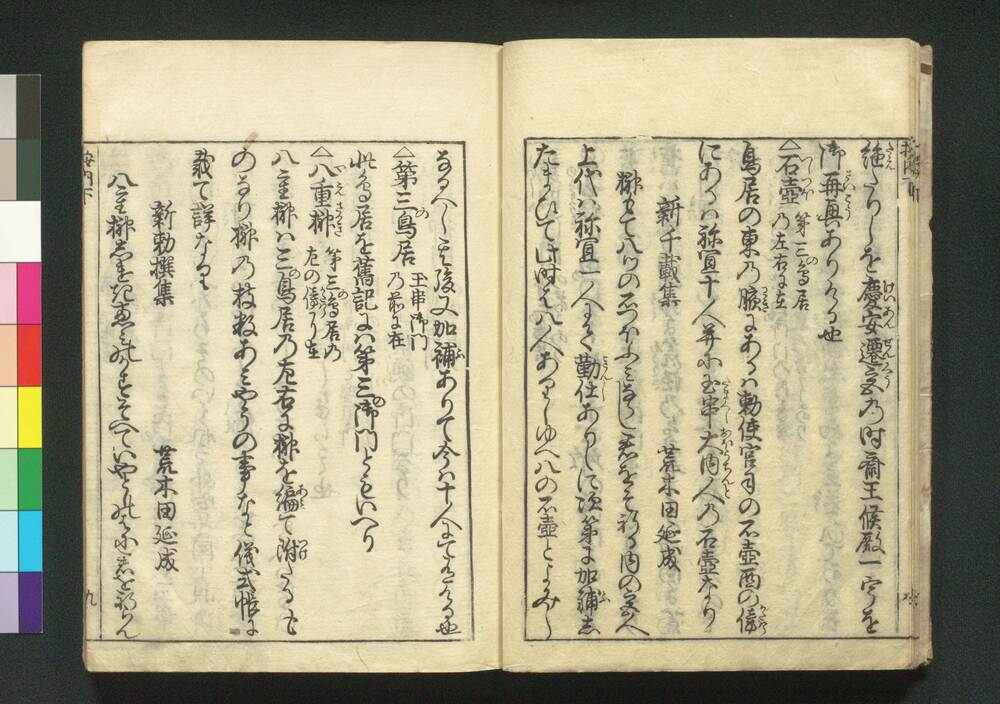 絶たりしを慶安遷宮の時齋王候殿一宇を
御再興ありける也
△石壺 第三鳥居の左右に在
鳥居の東の腋にあるハ勅使官司の石壺西の傍
にあるハ祢宜十人并に玉串大内人の石壺なり
新千載集 荒木田延成
榊もて八の石つほふミならし君をそ祈る内の宮人
上代ハ祢宜一人にて勤仕ありしに次第に加補し
たまひて此時ハ八人ありしゆへ八の石壺とよみし
なるへし其後又加補ありて今ハ十人にてさふらふ也
△第三鳥居 玉串御門の前に在
此鳥居を舊記にハ第三御門ともいへり
△八重榊 第三鳥居の左の傍に在
八重榊ハ三鳥居の左右に榊を編て附たるも
のなり榊の枝数あミやうの事なと儀式帳に
載て詳なり
新勅撰集 荒木田延成
八重榊しけき恵ミの数そへていやとしのはに君を祈らん
九